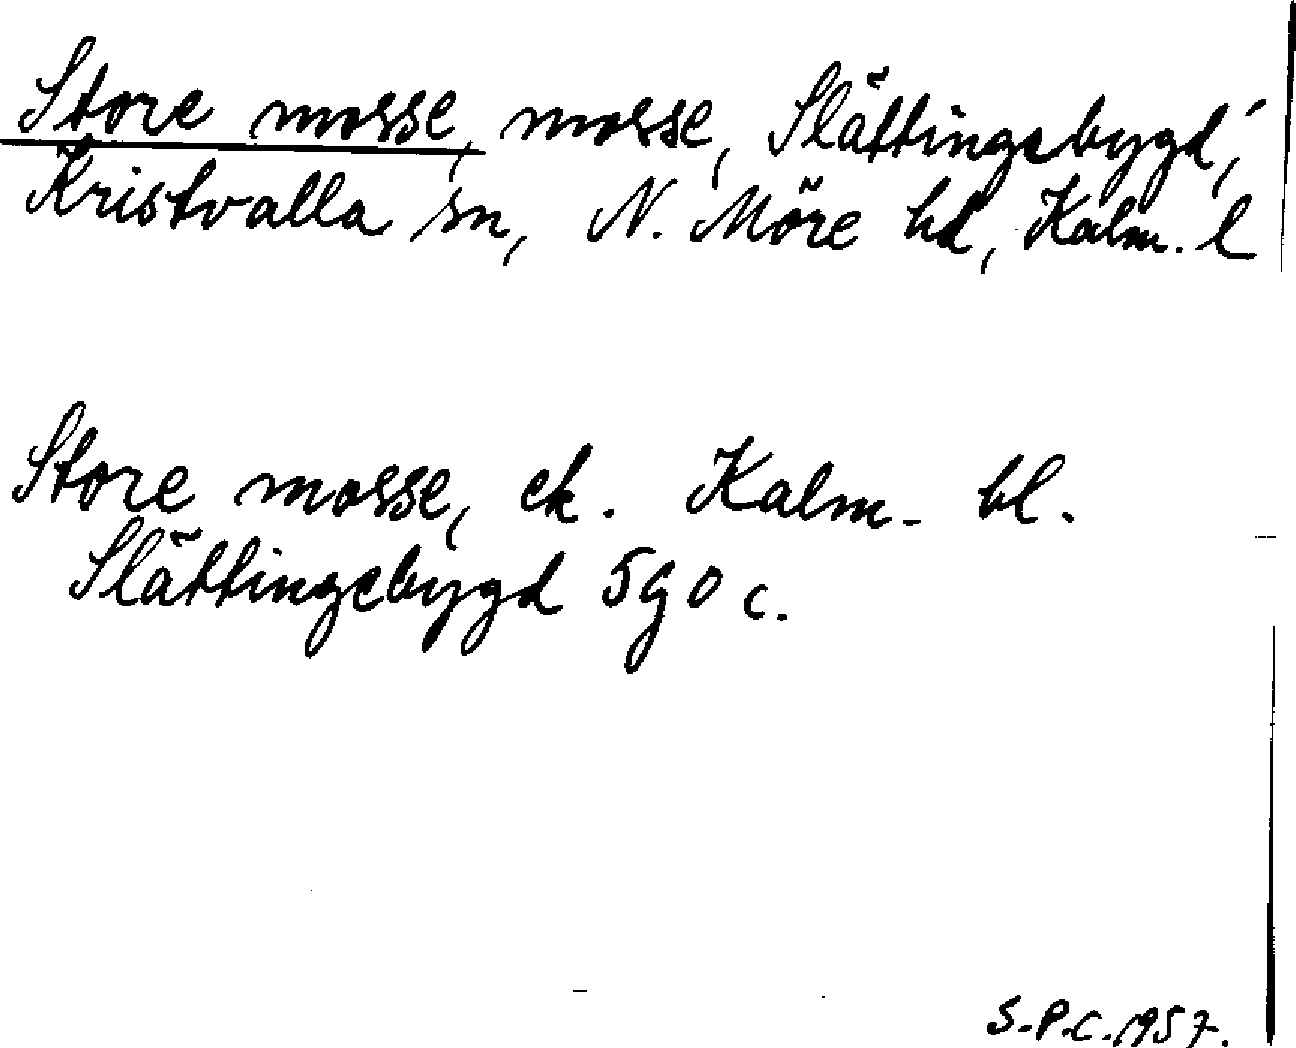 Store mosse, mosse, Slättingebygd,
Kristvalla sn, N. Möre hd, Kalm. l
Store mosse, ek. Kalm. bl.
Slättingebygd 5 g o c.
S.P.C. 1957.